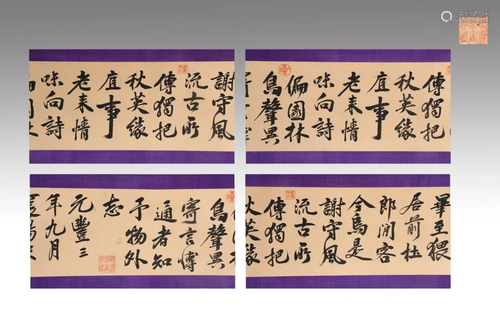 謝守風
流古所
傳獨把
秋英緣
底事
老來情
味向詩
傳獨把
秋英緣
底事
老來情
味向詩
偏園林
鳥聲異
鳥聲異
寄言傳
通者知
予物外
志
元豐三
年九月
畢至猥
居前杜
郎閒客
今焉是
謝守風
流古所
傳獨把
秋英緣